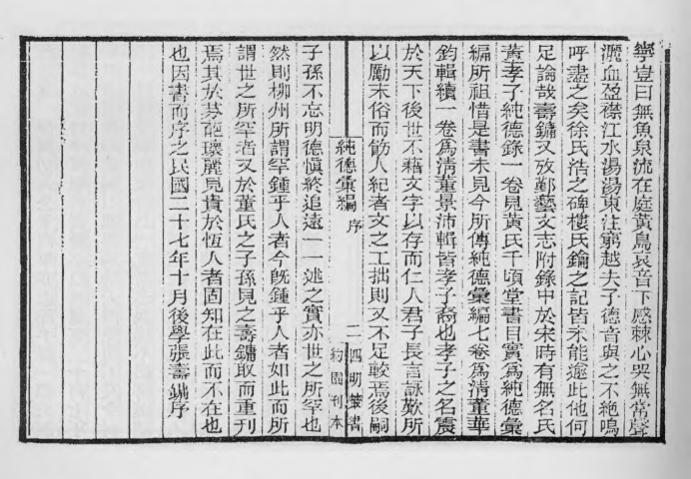 學豈曰無魚泉流在庭黃鳥哀音下感棘心哭無常聲
灑血盈襟江水湯湯東注窮越夫子德音與之不絕嗚
呼盡之矣徐氏浩之碑樓氏鑰之記皆未能逾此他何
足論哉壽鏞又攷鄞藝文志附錄中於宋時有無名氏
黃孝子純德錄一卷見黃氏千頃堂書目實爲純德彙
編所祖惜是書未見今所傳純德彙編七卷爲清董華
鈞輯續一卷爲清董景沛輯皆孝子裔也孝子之名震
於天下後世不藉文字以存而仁人君子長言詠歎所
以勵末俗而筋人紀者文之工拙則又不足較焉後嗣
純德彙編 序 二 四明叢書 約園刊本
子孫不忘明德愼終追遠一一述之實亦世之所罕也
然則柳州所謂罕鍾乎人者今旣鍾乎人者如此而所
謂世之所罕者又於董氏之子孫見之壽鏞取而重刊
焉其於芬葩瓌麗見貴於恆人者固知在此而不在也
也因書而序之民國二十七年十月後學張壽鏞序